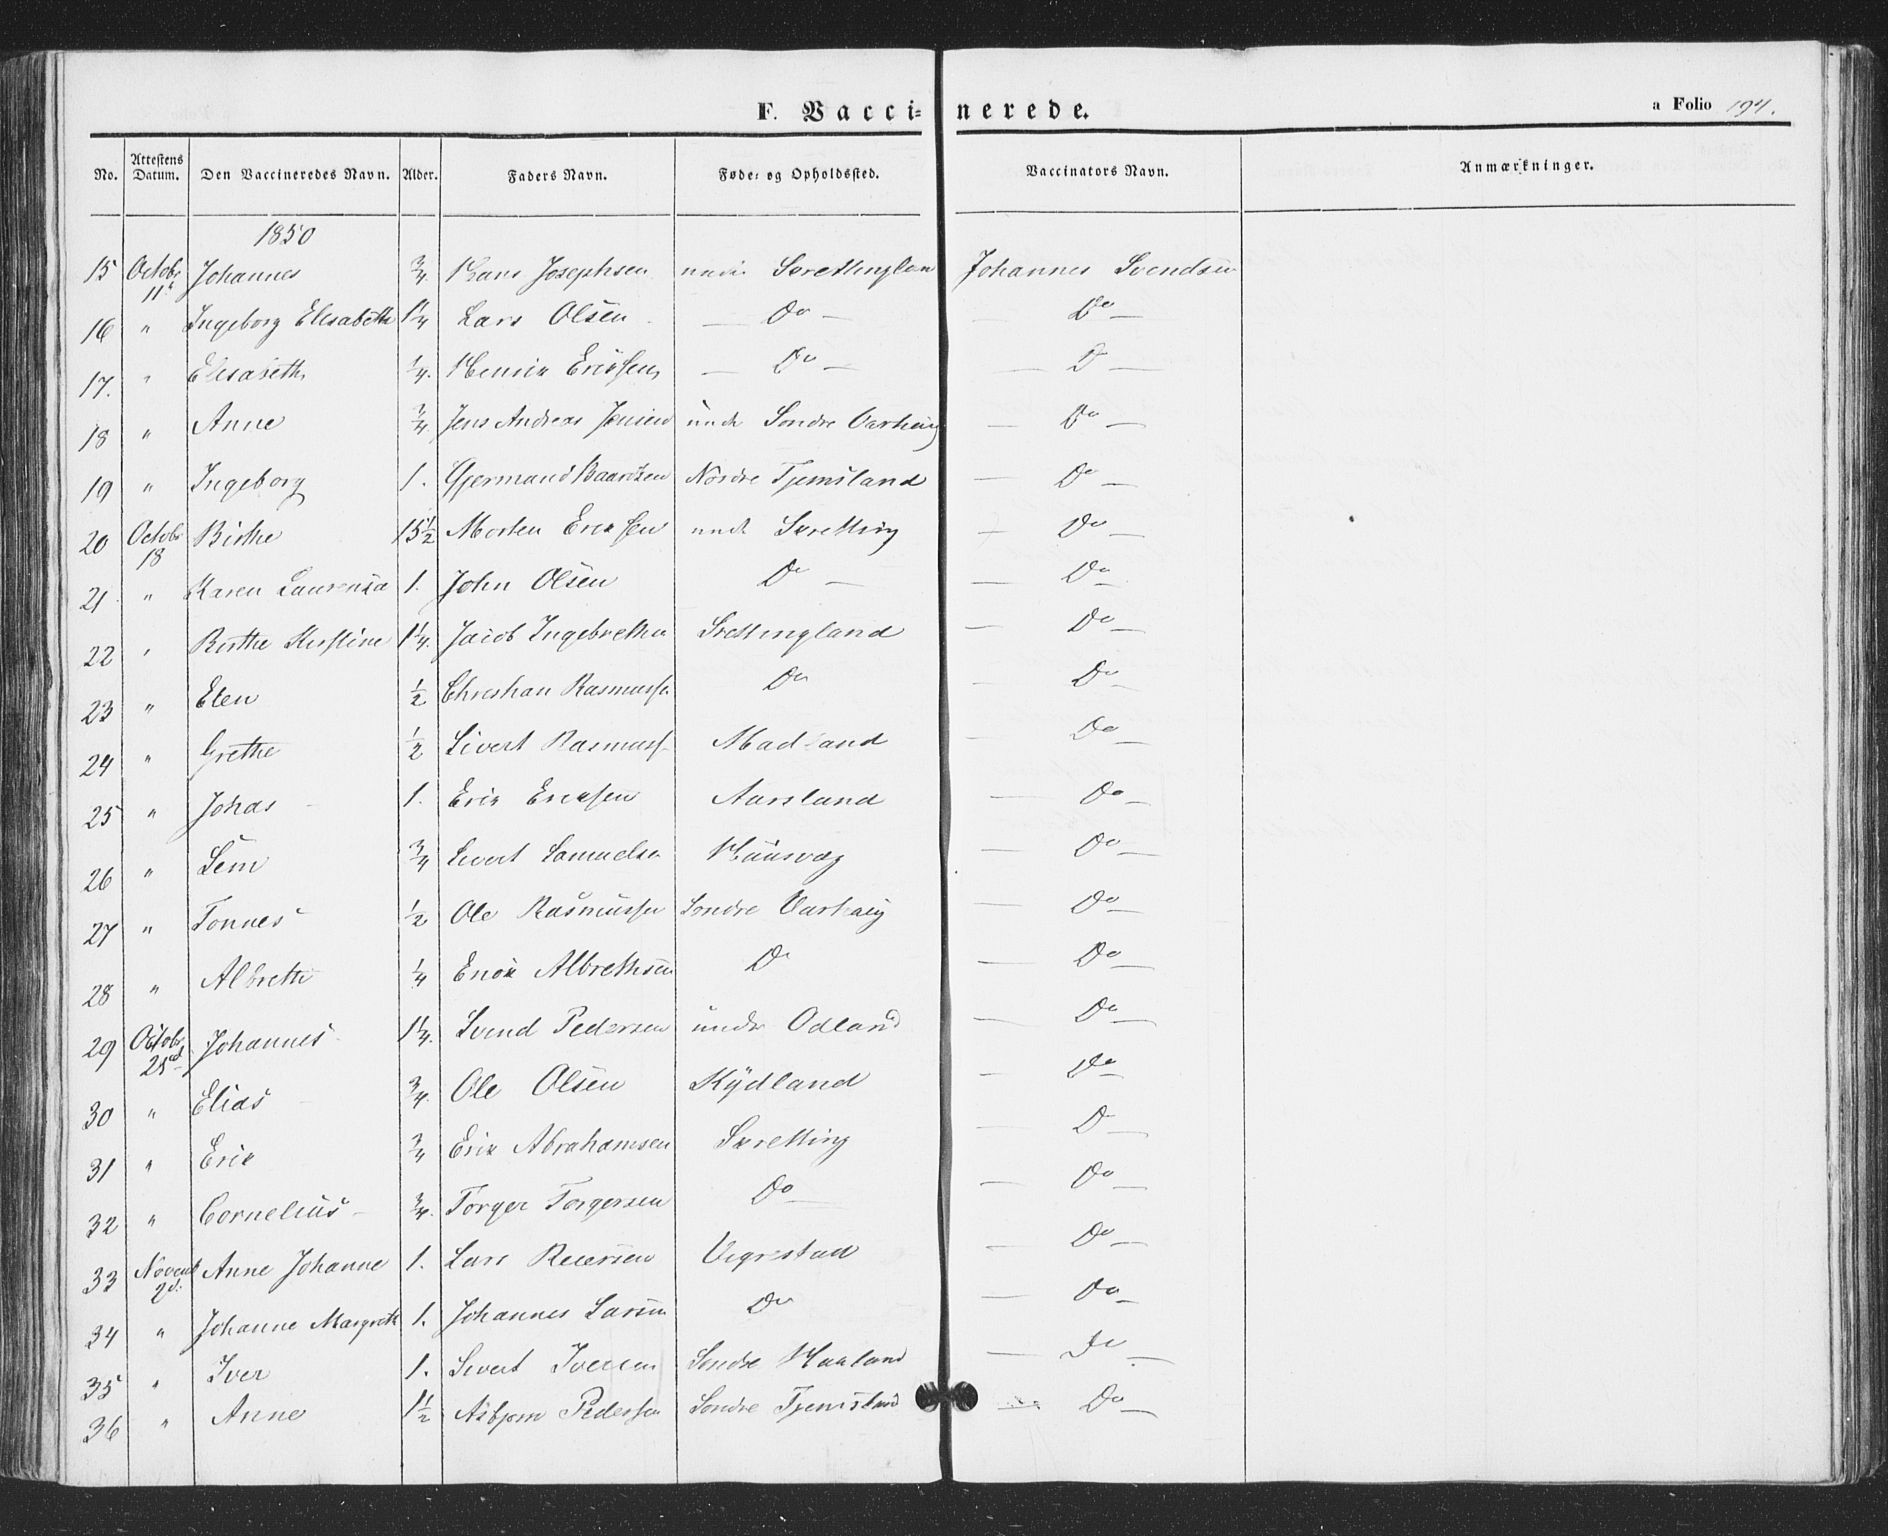 F. Vaccinerede.
a Folio 194.
No. Attestens Datum. Den Vaccineredes Navn. Alder. Faders Navn. Føde- og Opholdssted. Vaccinators Navn. Anmærkninger.
1850
15 Octobr 11te Johannes 3/4 Hans Josephsen under Skrettinglan Johannes Svendsen
16 " Ingeborg Elisabeth 1 1/4 Lars Olsen — Do — Do —
17. " Elisabeth 1/4. Henrik Eriksen — Do — — D —
18 " Anne 3/4 Jens Andreas Jensen unde Søndre Varhaug — Do —
19 " Ingeborg 1. Gjermand Baardsen Nordre Tjemsland — Do —
20 Octobr 18 Birthe 15 1/2 Morten Eriksen unde Skretting — Do —
21 " Karen Laurensa 1. John Olsen Do — — Do —
22 " Birthe Kirstine 1 1/4. Jacob Ingebrethsen Srettingland — Do —
23 " Elen 1/2 Christian Rasmussen Do — Do —
24 " Grethe 1/2 Sivert Rasmuss Madland — Do —
25 " Johas 1. Erik Eriksen Aarsland — Do —
26 " Sem 3/4 Sivert Samuelsen Haarvag — Do —
27 " Tonnes 1/2 Ole Rasmussen Søndre Varhaug — Do —
28 " Albrette 1/4 Enok Albrethsen Do — Do —
29 Octobr 25d Johannes 1 1/4. Svend Pedersen under Odland — Do —
30 " Elias 3/4. Ole Olsen Kÿdland — Do —
31 " Erik 3/4 Erik Abrahamsen Skretting — D —
32 " Cornelius 3/4. Torger Torgersen Do — — Do —
33 Novemb 2d. Anne Johanne 1. Lars Reiersen Vigrestad — Do —
34 " Johanne Margreth 1. Johannes Larsen Do — Do —
35 " Iver 1. Sivert Iversen Søndre Haaland — Do —
36 " Anne 1 1/2 Asbjørn Pedersen Søndre Tjemsland — Do —